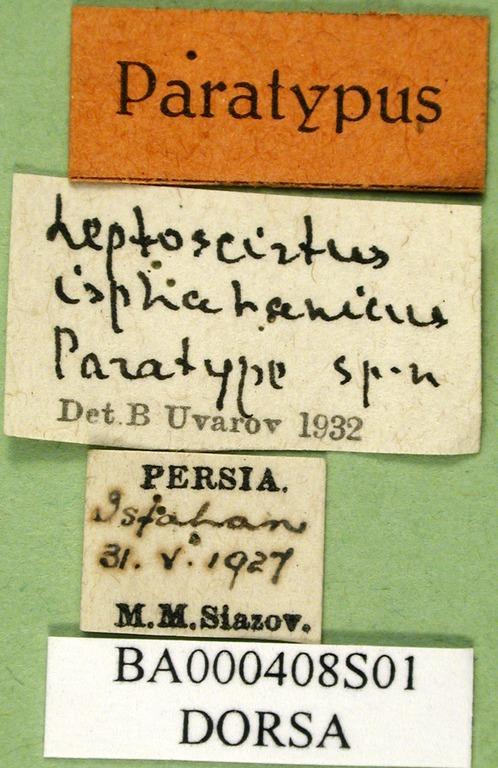 Paratypus
Leptoscirtus
isphahanicus
Paratype sp.n
Det. B Uvarov 1932
PERSIA.
Isfahan
31. V. 1927
M.M.Siazov.
BA000408S01
DORSA